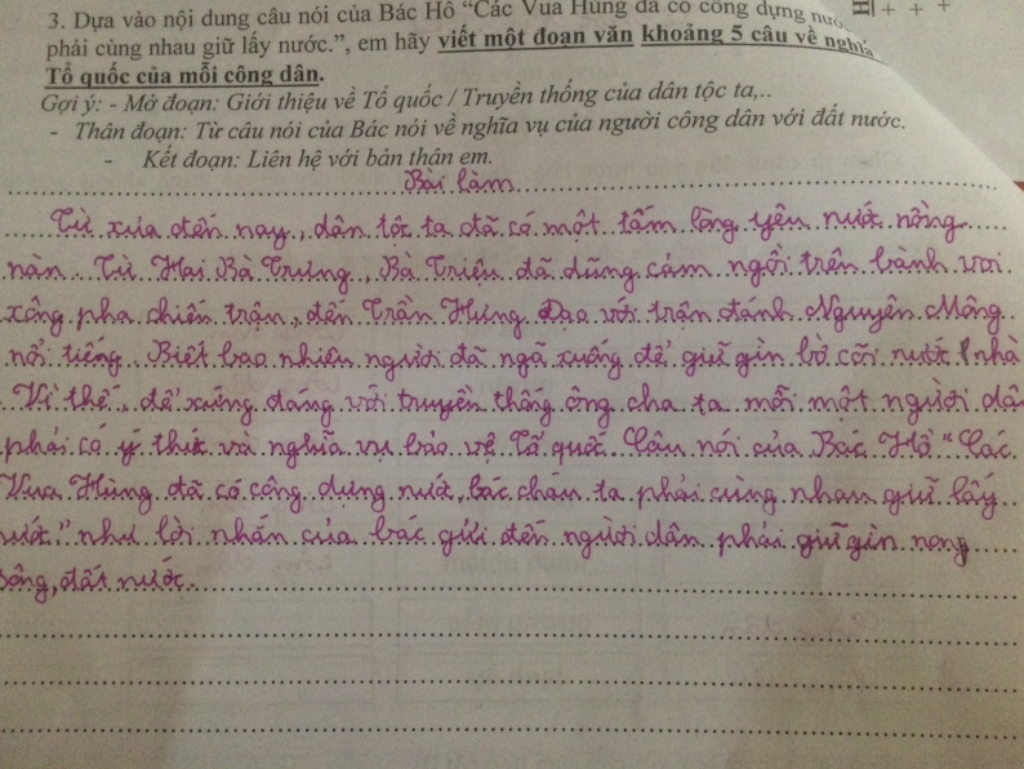 3. Dựa vào nội dung câu nói của Bác Hồ “Các Vua Hùng đã có công dựng nước
phải cùng nhau giữ lấy nước.”, em hãy viết một đoạn văn khoảng 5 câu về nghĩa
Tổ quốc của mỗi công dân.
Gợi ý: - Mở đoạn: Giới thiệu về Tổ quốc / Truyền thống của dân tộc ta,..
- Thân đoạn: Từ câu nói của Bác nói về nghĩa vụ của người công dân với đất nước.
- Kết đoạn: Liên hệ với bản thân em.
Bài làm
Từ xưa đến nay, dân tộc ta đã có một tấm lòng yêu nước nồng
nàn. Từ Hai Bà Trưng, Bà Triệu đã dũng cảm ngồi trên bành voi
xông pha chiến trận, đến Trần Hưng Đạo với trận đánh Nguyên Mông
nổi tiếng. Biết bao nhiêu người đã ngã xuống để giữ gìn bờ cõi nước nhà
Vì thế, để xứng đáng với truyền thống ông cha ta mỗi một người dân
phải có ý thức và nghĩa vụ bảo vệ Tổ quốc. Câu nói của Bác Hồ “Các
Vua Hùng đã có công dựng nước, bác cháu ta phải cùng nhau giữ lấy
nước.” như lời nhắn của bác gửi đến người dân phải giữ gìn nong
sông, đất nước.